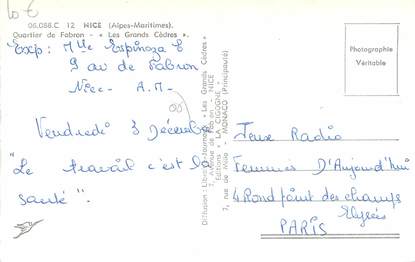 10 €
06.088.C 12 NICE (Alpes-Maritimes).
Quartier de Fabron - « Les Grands Cèdres ».
Exp: Mlle Espinoza C
9 av de Fabron
Nice - A.M-
Vendredi 3 Décembre
"Le travail c'est la
santé".
Diffusion : Librairie Tournaire « Les Grands Cèdres »
7, Avenue de Fabron - NICE
Editions LA CIGOGNE
7, rue de Millo - MONACO (Principauté)
Photographie
Véritable
Jeux Radio
Femmes D'Aujourd'hui
4 Rond point des champs
Elysées
PARIS